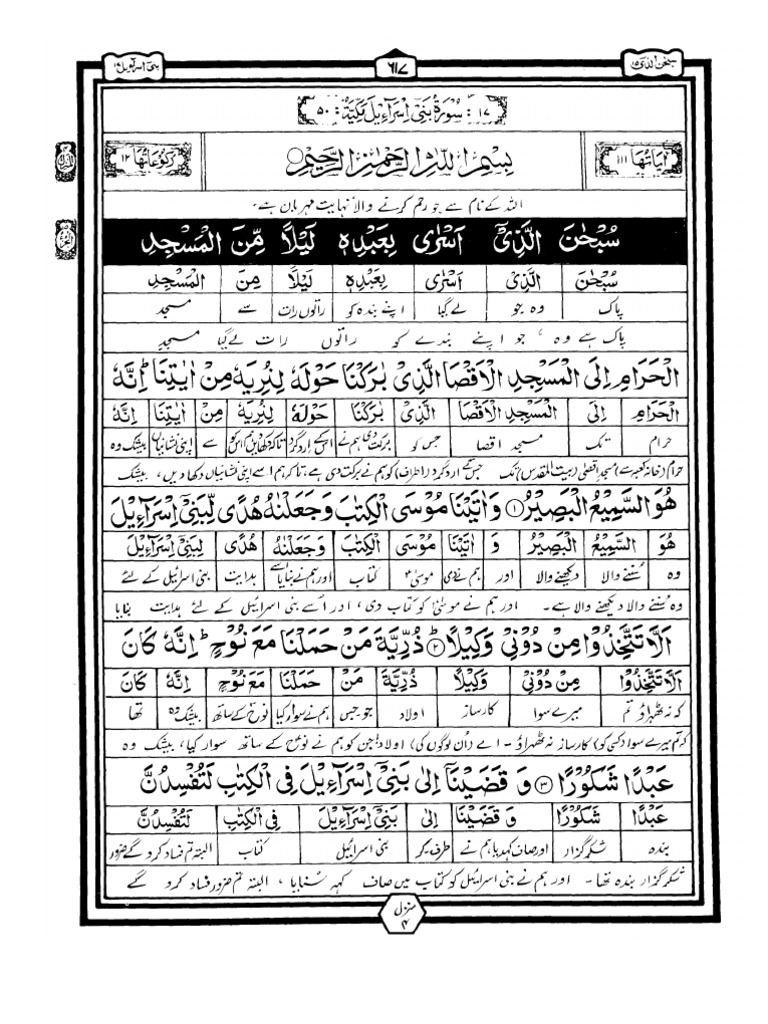 سبحٰن الذی ۱۵
۶۱۷
بنی اسرآءیل ۱۷
۱۷ : سُوْرَةُ بَنِیْٓ اِسْرَآءِیْلَ مَكِّیَّةٌ : ۵۰
اٰیَاتُهَا ۱۱۱
بِسْمِ اللّٰهِ الرَّحْمٰنِ الرَّحِیْمِ
رُكُوْعَاتُهَا ۱۲
اللہ کے نام سے جو رحم کرنے والا نہایت مہربان ہے۔
سُبْحٰنَ الَّذِیْٓ اَسْرٰى بِعَبْدِهٖ لَیْلًا مِّنَ الْمَسْجِدِ
سُبْحٰنَ الَّذِیْٓ اَسْرٰى بِعَبْدِهٖ لَیْلًا مِنَ الْمَسْجِدِ
پاک وہ جو لے گیا اپنے بندہ کو راتوں رات سے مسجد
پاک ہے وہ ، جو اپنے بندے کو راتوں رات لے گیا مسجدِ
الْحَرَامِ اِلَى الْمَسْجِدِ الْاَقْصَا الَّذِیْ بٰرَكْنَا حَوْلَهٗ لِنُرِیَهٗ مِنْ اٰیٰتِنَا ؕ اِنَّهٗ
الْحَرَامِ اِلَى الْمَسْجِدِ الْاَقْصَا الَّذِیْ بٰرَكْنَا حَوْلَهٗ لِنُرِیَهٗ مِنْ اٰیٰتِنَا اِنَّهٗ
حرام تک مسجد اقصا جس کو برکت دی ہم نے اسکے ارد گرد تاکہ دکھا دیں ہم اسکو سے اپنی نشانیاں بیشک وہ
حرام (خانہ کعبہ) سے مسجدِ اقصٰی (بیت المقدس) تک جس کے ارد گرد (اطراف) کو ہم نے برکت دی ہے، تاکہ ہم اسے اپنی نشانیاں دکھا دیں، بیشک
هُوَ السَّمِیْعُ الْبَصِیْرُ ۱ وَ اٰتَیْنَا مُوْسَى الْكِتٰبَ وَ جَعَلْنٰهُ هُدًى لِّبَنِیْٓ اِسْرَآءِیْلَ
هُوَ السَّمِیْعُ الْبَصِیْرُ وَ اٰتَیْنَا مُوْسَى الْكِتٰبَ وَ جَعَلْنٰهُ هُدًى لِبَنِیْٓ اِسْرَآءِیْلَ
وہ سننے والا دیکھنے والا اور ہم نے دی موسیٰؑ کتاب اور ہم نے بنایا اسے ہدایت بنی اسرائیل کے لئے
وہ سننے والا دیکھنے والا ہے۔ اور ہم نے موسیٰؑ کو کتاب دی، اور اُسے بنی اسرائیل کے لئے ہدایت بنایا
اَلَّا تَتَّخِذُوْا مِنْ دُوْنِیْ وَكِیْلًا ۲ ذُرِّیَّةَ مَنْ حَمَلْنَا مَعَ نُوْحٍ ؕ اِنَّهٗ كَانَ
اَلَّا تَتَّخِذُوْا مِنْ دُوْنِیْ وَكِیْلًا ذُرِّیَّةَ مَنْ حَمَلْنَا مَعَ نُوْحٍ اِنَّهٗ كَانَ
کہ نہ ٹھہراؤ تم میرے سوا کارساز اولاد جو جس ہم نے سوار کیا نوحؑ کے ساتھ بیشک وہ تھا
کہ تم میرے سوا (کسی کو) کارساز نہ ٹھہراؤ۔ اے (ان لوگوں کی) اولاد! جن کو ہم نے نوحؑ کے ساتھ سوار کیا، بیشک وہ
عَبْدًا شَكُوْرًا ۳ وَ قَضَیْنَاۤ اِلٰى بَنِیْٓ اِسْرَآءِیْلَ فِی الْكِتٰبِ لَتُفْسِدُنَّ
عَبْدًا شَكُوْرًا وَ قَضَیْنَاۤ اِلٰى بَنِیْٓ اِسْرَآءِیْلَ فِی الْكِتٰبِ لَتُفْسِدُنَّ
بندہ شکر گزار اور صاف کہدیا ہم نے طرف، کو بنی اسرائیل کتاب البتہ تم فساد کرو گے ضرور
شکر گزار بندہ تھا۔ اور ہم نے بنی اسرائیل کو کتاب میں صاف کہہ سنایا، البتہ تم ضرور فساد کرو گے
منزل
۴